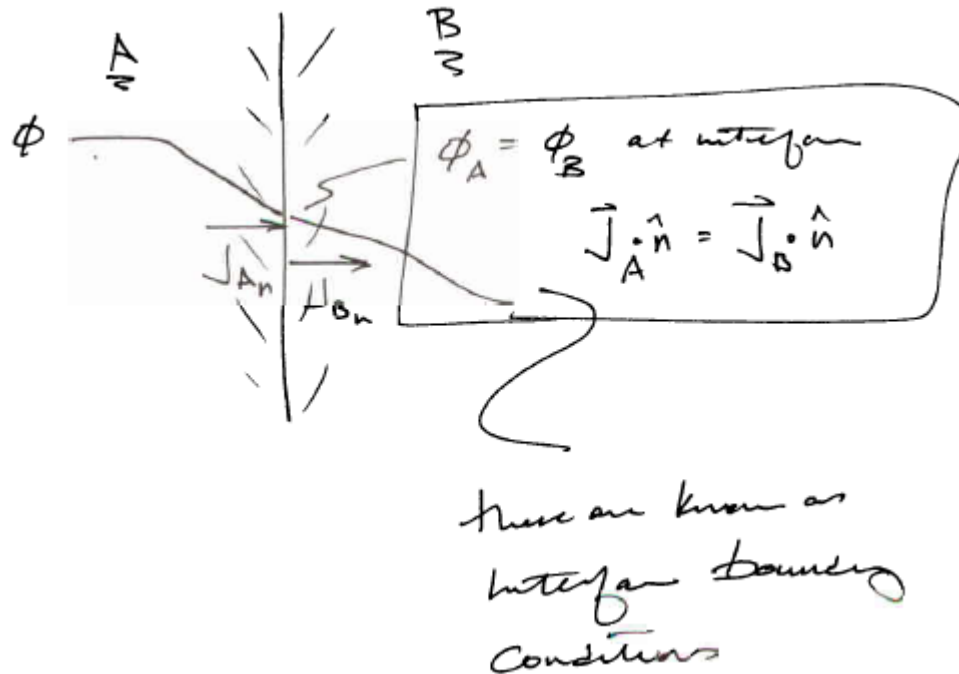 A
B
ϕ
ϕ_A = ϕ_B at interface
J⃗_A · n̂ = J⃗_B · n̂
J_An
J_Bn
these are known as
interface boundary
conditions